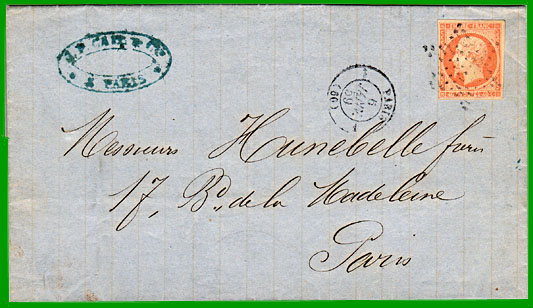 & Cie
À PARIS
PARIS
6
59
(60)
Messieurs Hunebelle frères
17, Bd. de la Madeleine
Paris